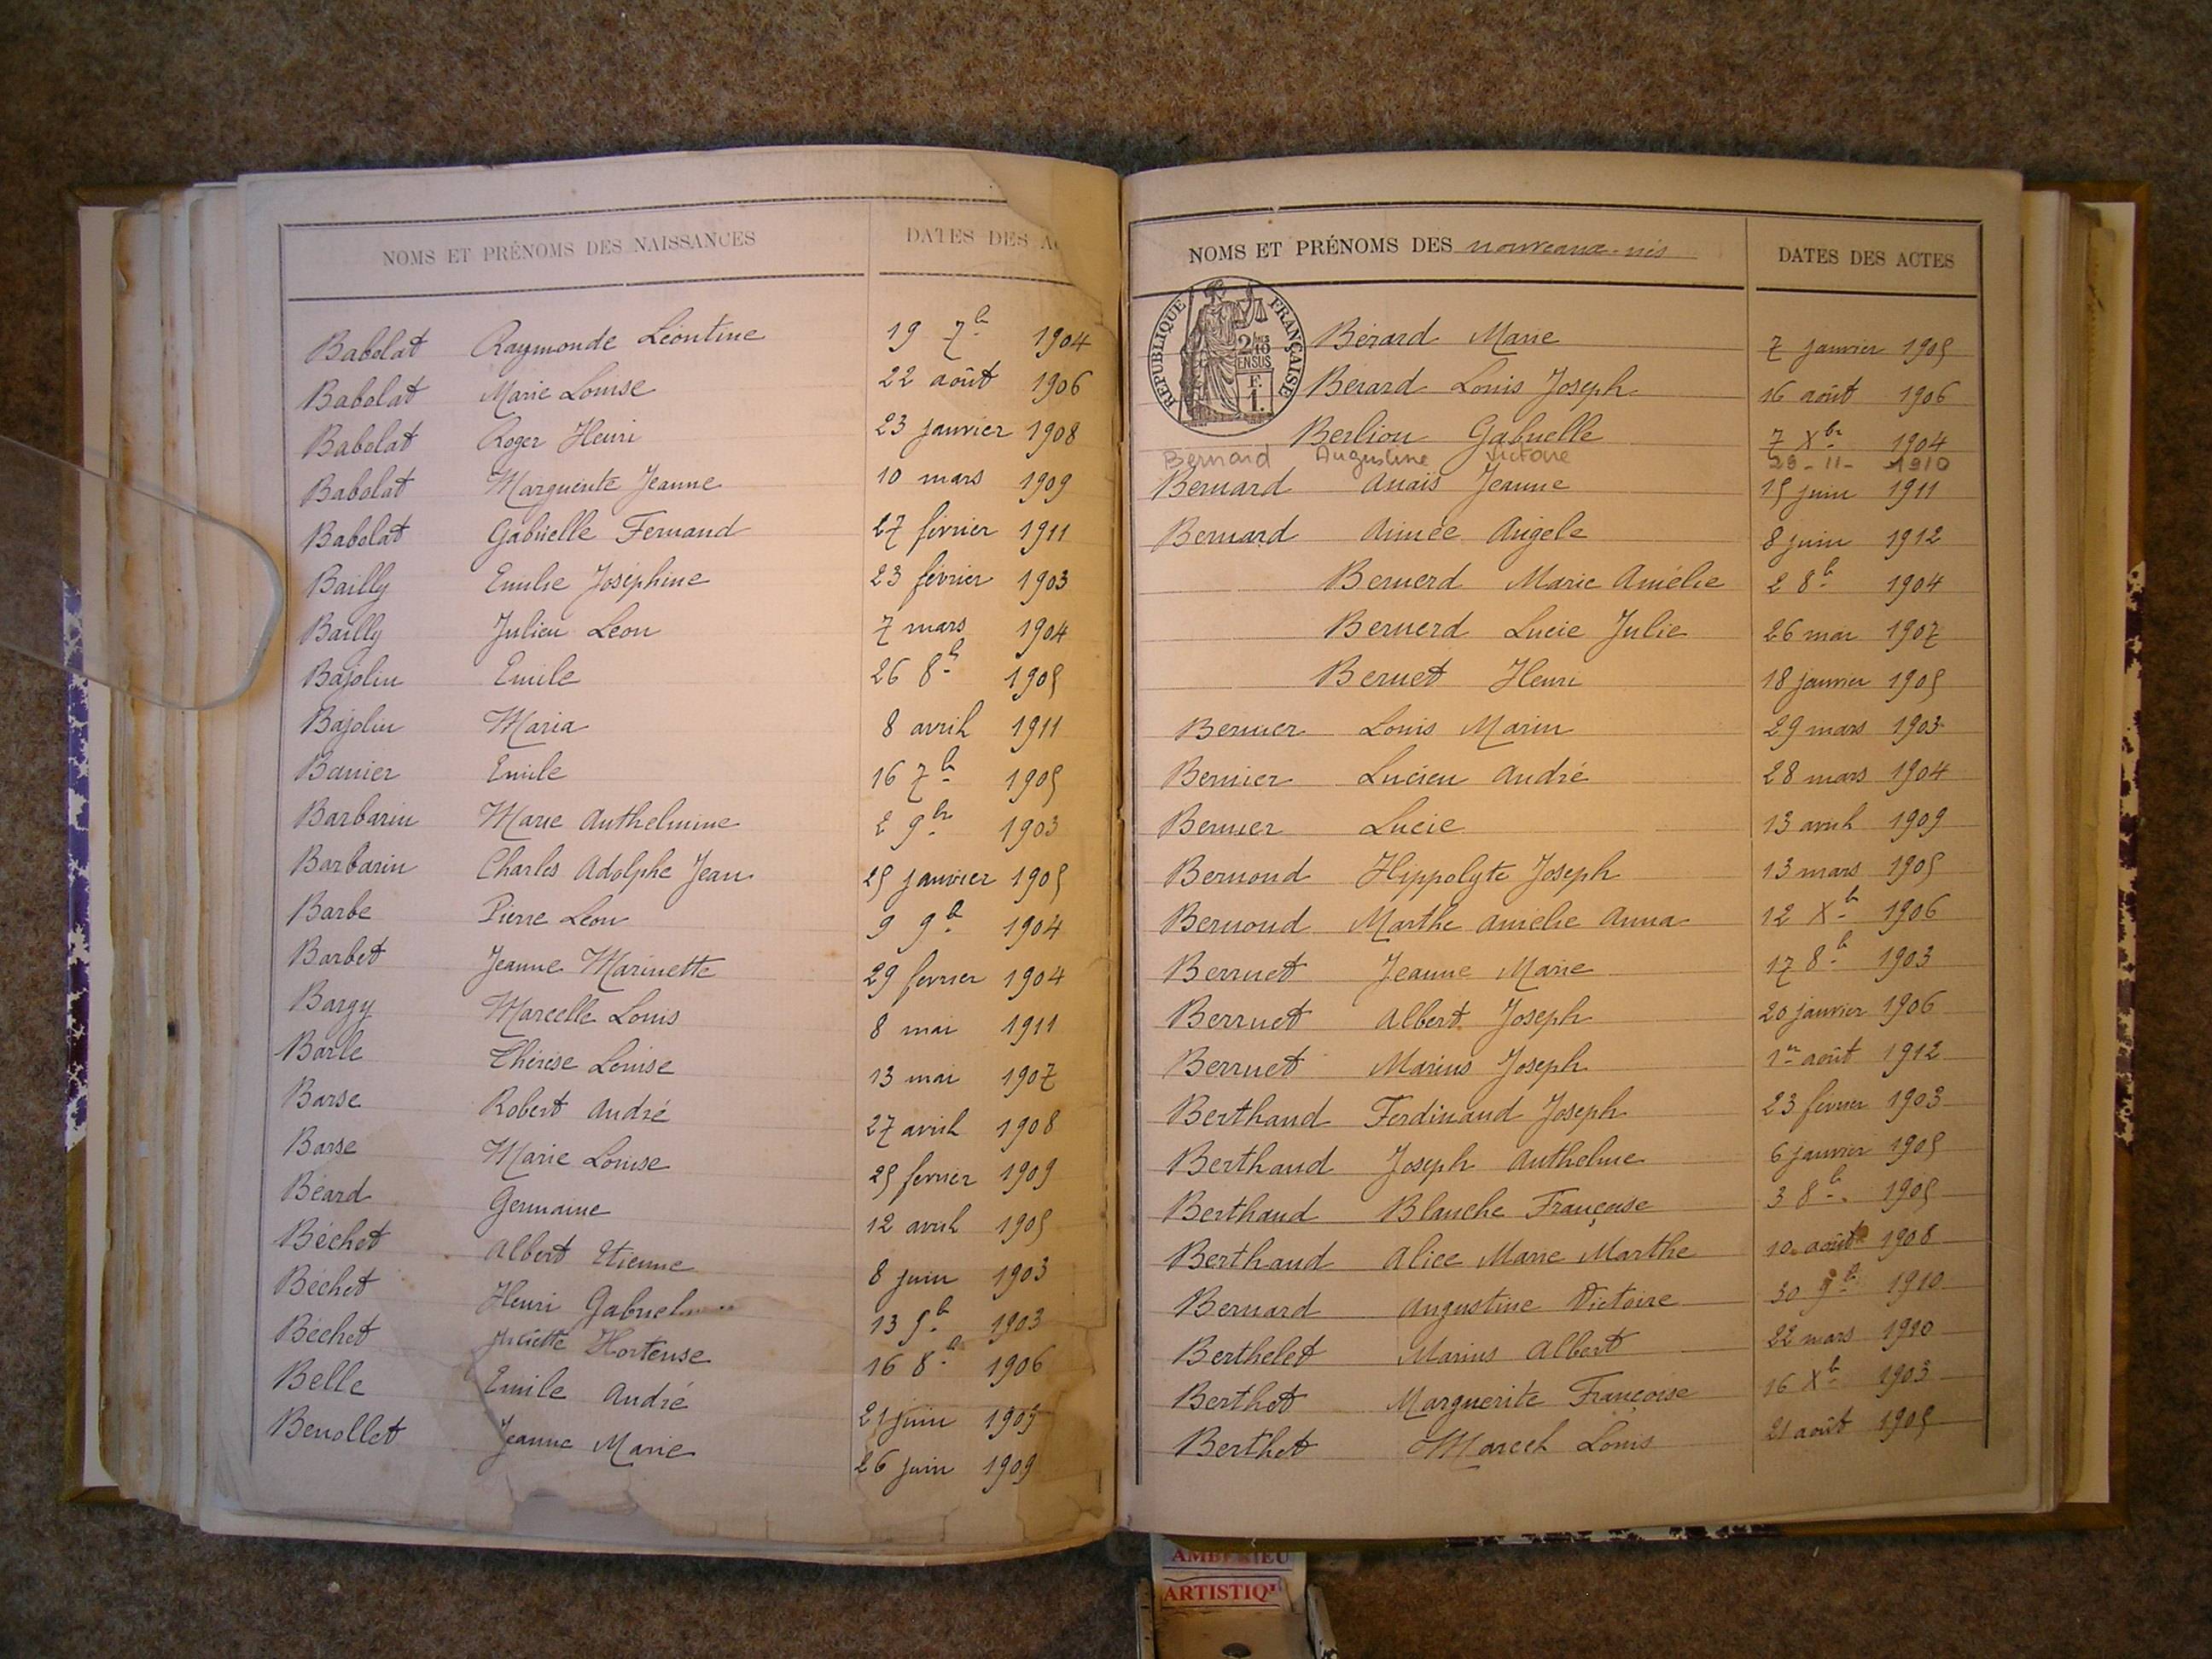 NOMS ET PRÉNOMS DES NAISSANCES DATES DES AC
Babolat Raymonde Léontine 19 7b 1904
Babolat Marie Louise 22 août 1906
Babolat Roger Henri 23 janvier 1908
Babolat Marguerite Jeanne 10 mars 1909
Babolat Gabrielle Fernand 27 février 1911
Bailly Emilie Joséphine 23 février 1903
Bailly Julien Léon 7 mars 1904
Bajolin Emile 26 8b 1905
Bajolin Maria 8 avril 1911
Banier Emile 16 7b 1905
Barbarin Marie Anthelmine 2 9br 1903
Barbarin Charles Adolphe Jean 25 janvier 1905
Barbe Pierre Léon 9 9b 1904
Barbet Jeanne Marinette 29 fevrier 1904
Bargy Marcelle Louis 8 mai 1911
Barle Thérèse Louise 13 mai 1907
Barse Robert André 27 avril 1908
Barse Marie Louise 25 fevrier 1909
Béard Germaine 12 avril 1905
Béchet Albert Etienne 8 juin 1903
Béchet Henri Gabriel 13 9b 1903
Béchet Juliette Hortense 16 8b 1906
Belle Emile André 21 juin 1905
Benollet Jeanne Marie 26 juin 1909
NOMS ET PRÉNOMS DES nouveaux-nés DATES DES ACTES
RÉPUBLIQUE FRANÇAISE
2/10 EN SUS
F. 1.
Bérard Marie 7 janvier 1905
Bérard Louis Joseph 16 août 1906
Berlion Gabrielle 7 Xbr 1904
Bernard Augustine Victoire 29-11-1910
Bernard Anaïs Jeanne 15 juin 1911
Bernard Aimée Angèle 8 juin 1912
Bernerd Marie Amélie 2 8b 1904
Bernerd Lucie Julie 26 mai 1907
Bernet Henri 18 janvier 1905
Bernier Louis Marin 29 mars 1903
Bernier Lucien André 28 mars 1904
Bernier Lucie 13 avril 1909
Bernond Hippolyte Joseph 13 mars 1905
Bernond Marthe Amélie Anna 12 Xb 1906
Berruet Jeanne Marie 17 8b 1903
Berruet Albert Joseph 20 janvier 1906
Berruet Marius Joseph 1er août 1912
Berthaud Ferdinand Joseph 23 février 1903
Berthaud Joseph Anthelme 6 janvier 1905
Berthaud Blanche Françoise 3 8b 1905
Berthaud Alice Marie Marthe 10 août 1908
Bernard Augustine Victoire 30 9b 1910
Berthelet Marius Albert 22 mars 1910
Berthet Marguerite Françoise 16 Xb 1903
Berthet Marcel Louis 21 août 1905
AMBERIEU
ARTISTIQ